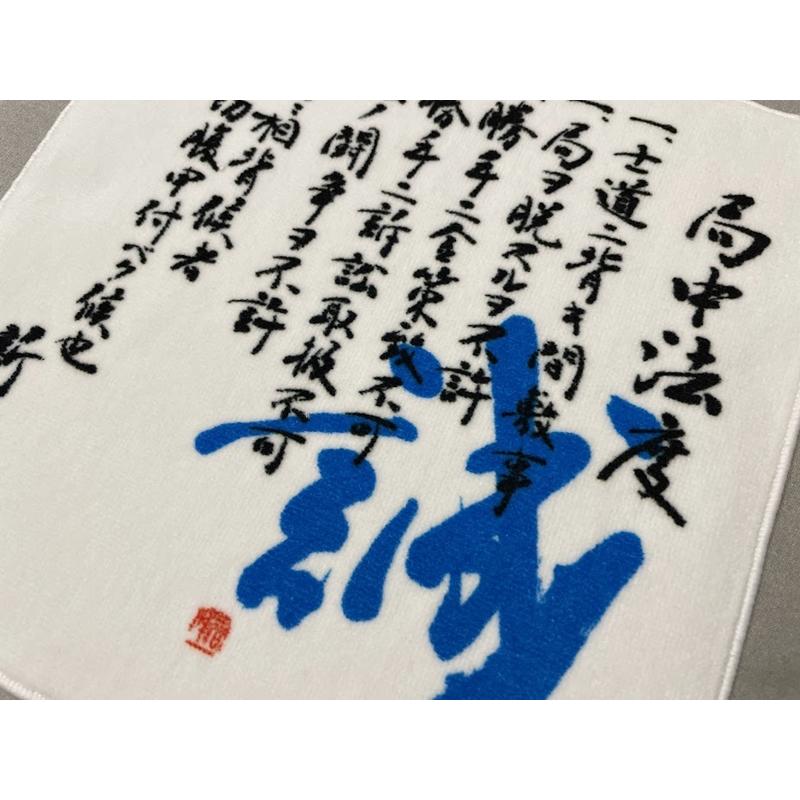 局中法度
一、士道ニ背キ間敷事
一、局ヲ脱スルヲ不許
勝手ニ金策致不可
勝手ニ訴訟取扱不可
ノ闘争ヲ不許
相背候者
切腹申付ベク候也
新
誠